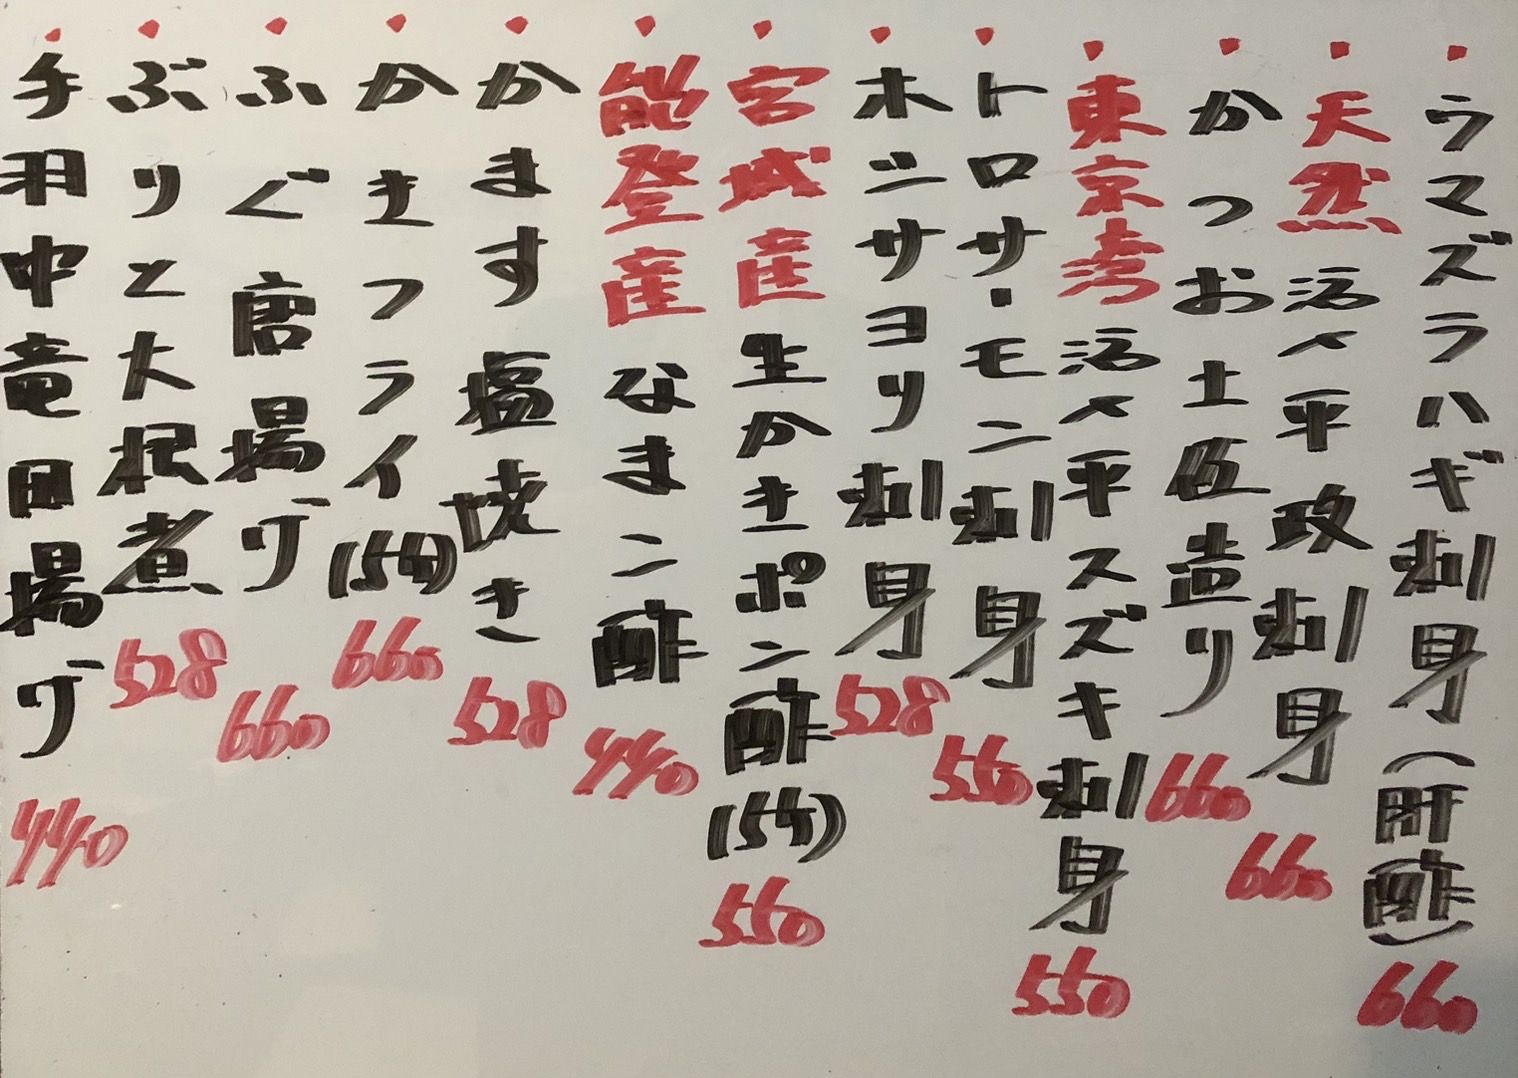 ラマズラハギ刺身(肝酢) 660
天然活〆平政刺身 660
かつお土佐造り 660
東京湾活〆平スズキ刺身 550
トロサーモン刺身 550
ホンサヨリ刺身 528
宮城産生かきポン酢(5ケ) 550
能登産なまこ酢 440
かます塩焼き 528
かきフライ(5ケ) 660
ふぐ唐揚げ 660
ぶりと大根煮 528
手羽中竜田揚げ 440